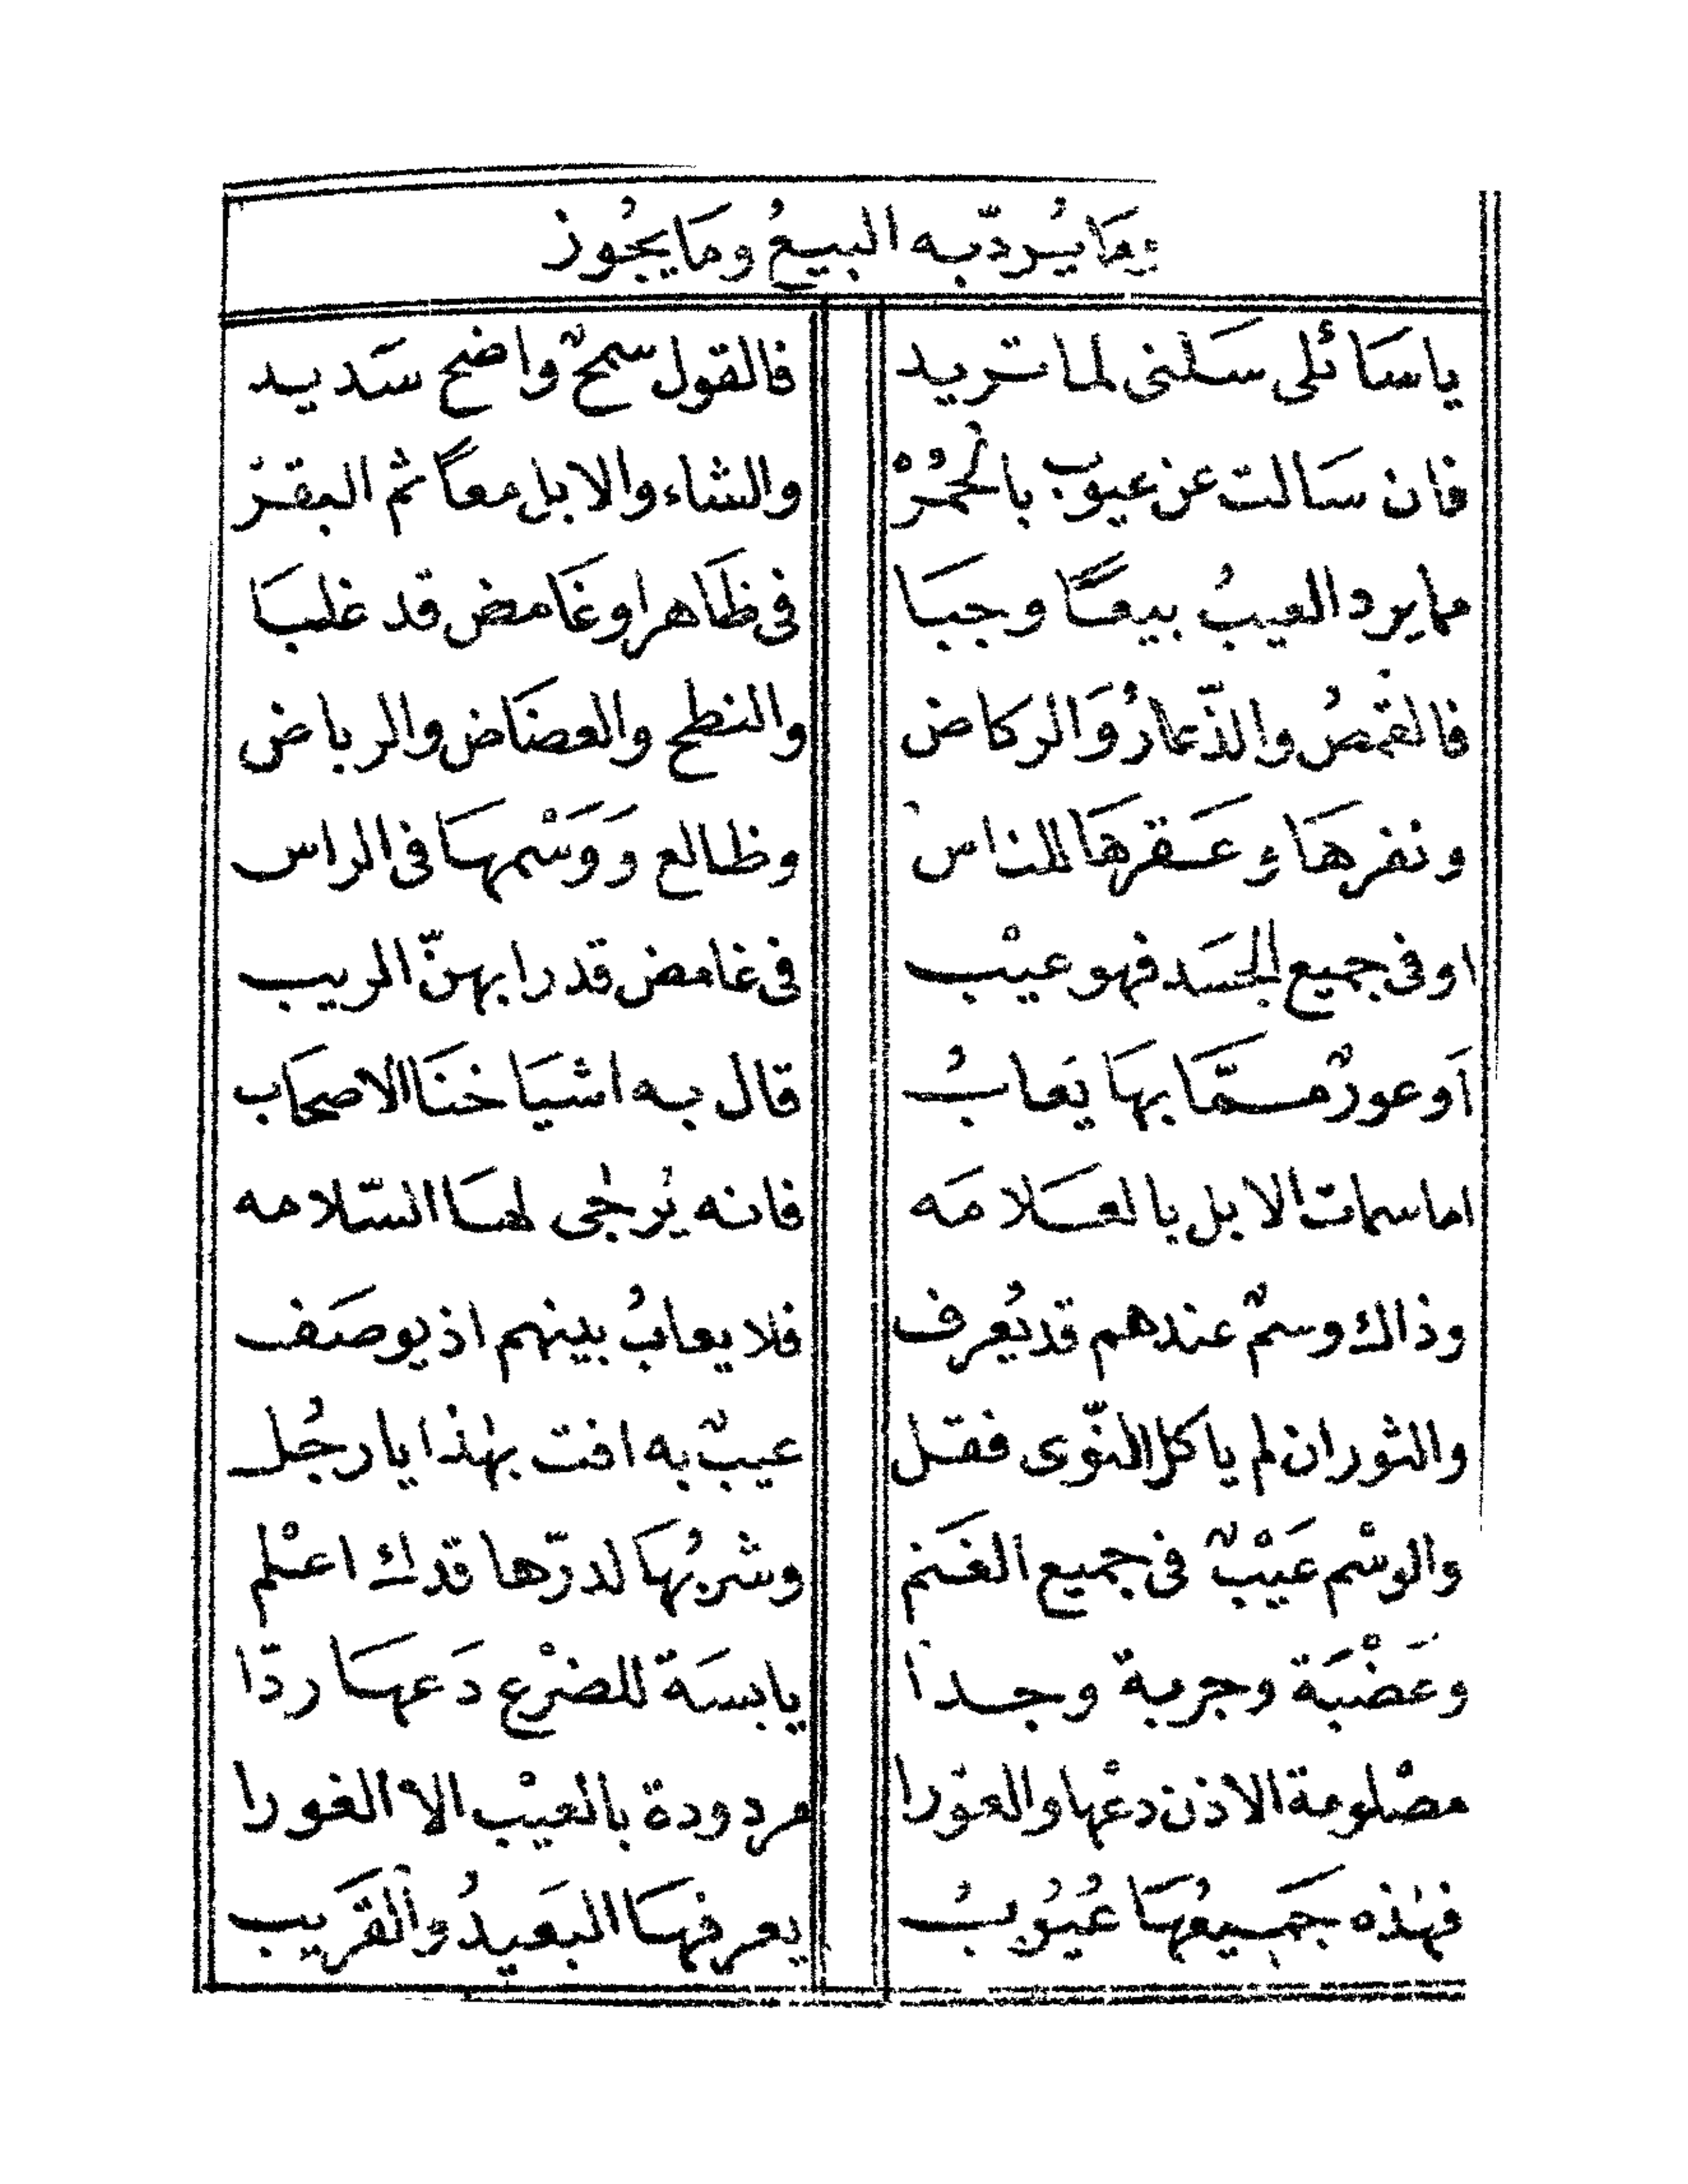 وما يُردّ به البيعُ وما يجُوز
يا سَائلى سَلنى لما تريد فالقول سمحٌ واضح سَديد
فان سَالت عن عيوب بالحُمُرْ والشاء والابل معاً ثم البقر
مما يرد العيبُ بيعًا وجبَا فى ظَاهر او غَامض قد غلبَا
فالقمصُ والذّعارُ وَالركاض والنطح والعضَاض والرباض
ونفرهَا وعَقرهَا للناس وظالع وَوَسْمهَا فى الراس
او فى جميع الجسَد فهو عيْب فى غامض قد رابهنّ الريب
اَو عورٌ ممَّا بهَا يَعابُ قال به اشيَاخنَا الاصحَاب
اما سمات الابل يا لعَلامَه فانه يُرجٰى لهَا السّلامه
وذاك وسمٌ عندهم قد يُعرف فلا يعابُ بينهم اذ يوصَف
والثور ان لم ياكل النّوى فقل عيبٌ به افت بهٰذا يا رجُل
والوسْم عَيْبٌ فى جميع الغَنم وشربُهَا لدرّها قدك اعْلم
وعَضْبَة وجربة وجدا يابسَة للضرْع دَعهَا ردّا
مصْلومة الاذن دعْها والعوّرا مردودة بالعيْب الا الغورا
فهٰذه جَميعُهَا عُيُوبُ يعرفهَا البَعيدُ وَالقَريب